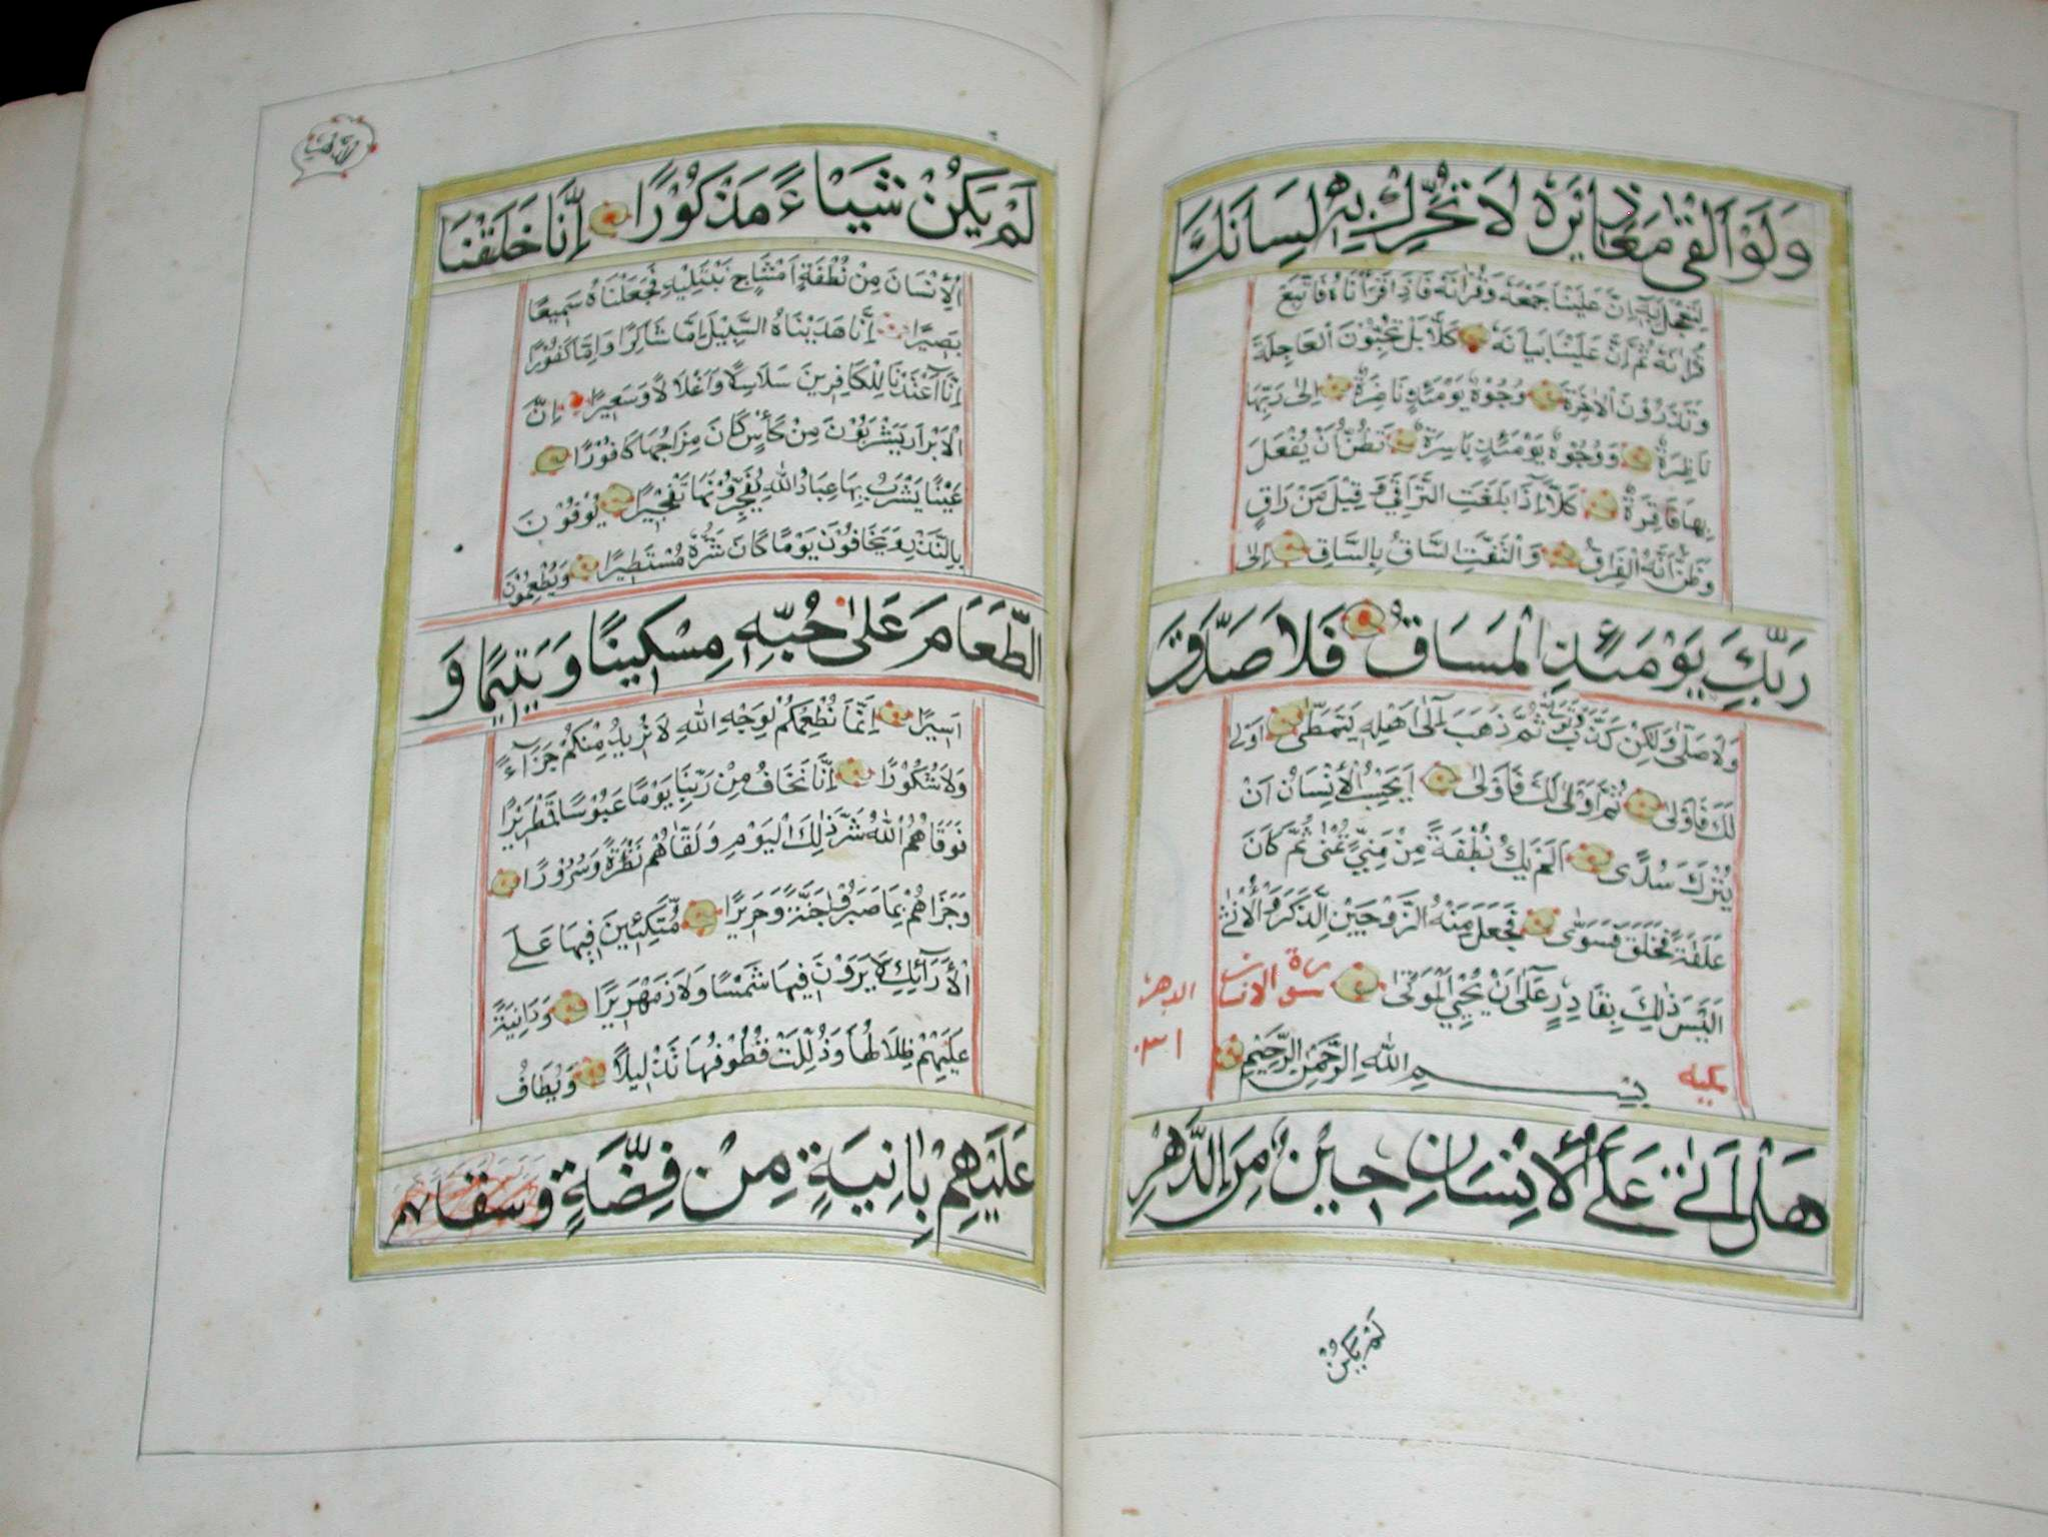 وَلَوْ اَلْقٰى مَعَاذٖيرَهُ لَا تُحَرِّكْ بِهٖ لِسَانَكَ
لِتَعْجَلَ بِهٖ اِنَّ عَلَيْنَا جَمْعَهُ وَقُرْاٰنَهُ فَاِذَا قَرَأْنَاهُ فَاتَّبِعْ
قُرْاٰنَهُ ثُمَّ اِنَّ عَلَيْنَا بَيَانَهُ كَلَّا بَلْ تُحِبُّوْنَ الْعَاجِلَةَ
وَتَذَرُوْنَ الْاٰخِرَةَ وُجُوْهٌ يَوْمَئِذٍ نَاضِرَةٌ اِلٰى رَبِّهَا
نَاظِرَةٌ وَوُجُوْهٌ يَوْمَئِذٍ بَاسِرَةٌ تَظُنُّ اَنْ يُفْعَلَ
بِهَا فَاقِرَةٌ كَلَّا اِذَا بَلَغَتِ التَّرَاقِيَ وَقِيْلَ مَنْ رَاقٍ
وَظَنَّ اَنَّهُ الْفِرَاقُ وَالْتَفَّتِ السَّاقُ بِالسَّاقِ اِلٰى
رَبِّكَ يَوْمَئِذٍ الْمَسَاقُ فَلَا صَدَّقَ
وَلَا صَلّٰى وَلٰكِنْ كَذَّبَ وَتَوَلّٰى ثُمَّ ذَهَبَ اِلٰى اَهْلِهٖ يَتَمَطّٰى اَوْلٰى
لَكَ فَاَوْلٰى ثُمَّ اَوْلٰى لَكَ فَاَوْلٰى اَيَحْسَبُ الْاِنْسَانُ اَنْ
يُتْرَكَ سُدًى اَلَمْ يَكُ نُطْفَةً مِنْ مَنِيٍّ يُمْنٰى ثُمَّ كَانَ
عَلَقَةً فَخَلَقَ فَسَوّٰى فَجَعَلَ مِنْهُ الزَّوْجَيْنِ الذَّكَرَ وَالْاُنْثٰى
اَلَيْسَ ذٰلِكَ بِقَادِرٍ عَلٰى اَنْ يُحْيِيَ الْمَوْتٰى سورة الانسان الدهر
مكية بِسْمِ اللّٰهِ الرَّحْمٰنِ الرَّحِيْمِ ٣١
هَلْ اَتٰى عَلَى الْاِنْسَانِ حِيْنٌ مِنَ الدَّهْرِ
لَمْ يَكُنْ
لَمْ يَكُنْ شَيْاءً مَذْكُوْرًا اِنَّا خَلَقْنَا
الْاِنْسَانَ مِنْ نُطْفَةٍ اَمْشَاجٍ نَبْتَلِيْهِ فَجَعَلْنَاهُ سَمِيْعًا
بَصِيْرًا اِنَّا هَدَيْنَاهُ السَّبِيْلَ اِمَّا شَاكِرًا وَاِمَّا كَفُوْرًا
اِنَّا اَعْتَدْنَا لِلْكَافِرِيْنَ سَلَاسِلًا وَاَغْلَالًا وَسَعِيْرًا اِنَّ
الْاَبْرَارَ يَشْرَبُوْنَ مِنْ كَأْسٍ كَانَ مِزَاجُهَا كَافُوْرًا
عَيْنًا يَشْرَبُ بِهَا عِبَادُ اللّٰهِ يُفَجِّرُوْنَهَا تَفْجِيْرًا يُوْفُوْنَ
بِالنَّذْرِ وَيَخَافُوْنَ يَوْمًا كَانَ شَرُّهُ مُسْتَطِيْرًا وَيُطْعِمُوْنَ
الطَّعَامَ عَلٰى حُبِّهٖ مِسْكِيْنًا وَيَتِيْمًا وَ
اَسِيْرًا اِنَّمَا نُطْعِمُكُمْ لِوَجْهِ اللّٰهِ لَا نُرِيْدُ مِنْكُمْ جَزَآءً
وَلَا شُكُوْرًا اِنَّا نَخَافُ مِنْ رَبِّنَا يَوْمًا عَبُوْسًا قَمْطَرِيْرًا
فَوَقَاهُمُ اللّٰهُ شَرَّ ذٰلِكَ الْيَوْمِ وَلَقّٰاهُمْ نَضْرَةً وَسُرُوْرًا
وَجَزَاهُمْ بِمَا صَبَرُوْا جَنَّةً وَحَرِيْرًا مُتَّكِئِيْنَ فِيْهَا عَلَى
الْاَرَآئِكِ لَا يَرَوْنَ فِيْهَا شَمْسًا وَلَا زَمْهَرِيْرًا وَدَانِيَةً
عَلَيْهِمْ ظِلَالُهَا وَذُلِّلَتْ قُطُوْفُهَا تَذْلِيْلًا وَيُطَافُ
عَلَيْهِمْ بِاٰنِيَةٍ مِنْ فِضَّةٍ وسقاهم